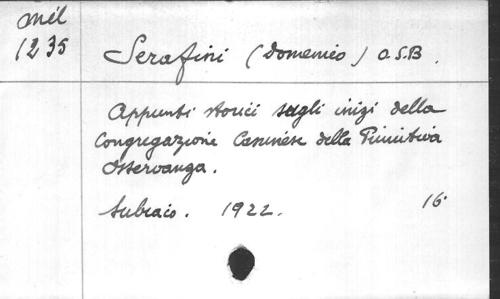 Mél
1235
Serafini (Domenico) O.S.B.
Appunti storici sugli inizi della
Congregazione Casinese della Primitiva
Osservanza.
Subiaco. 1922. 16°